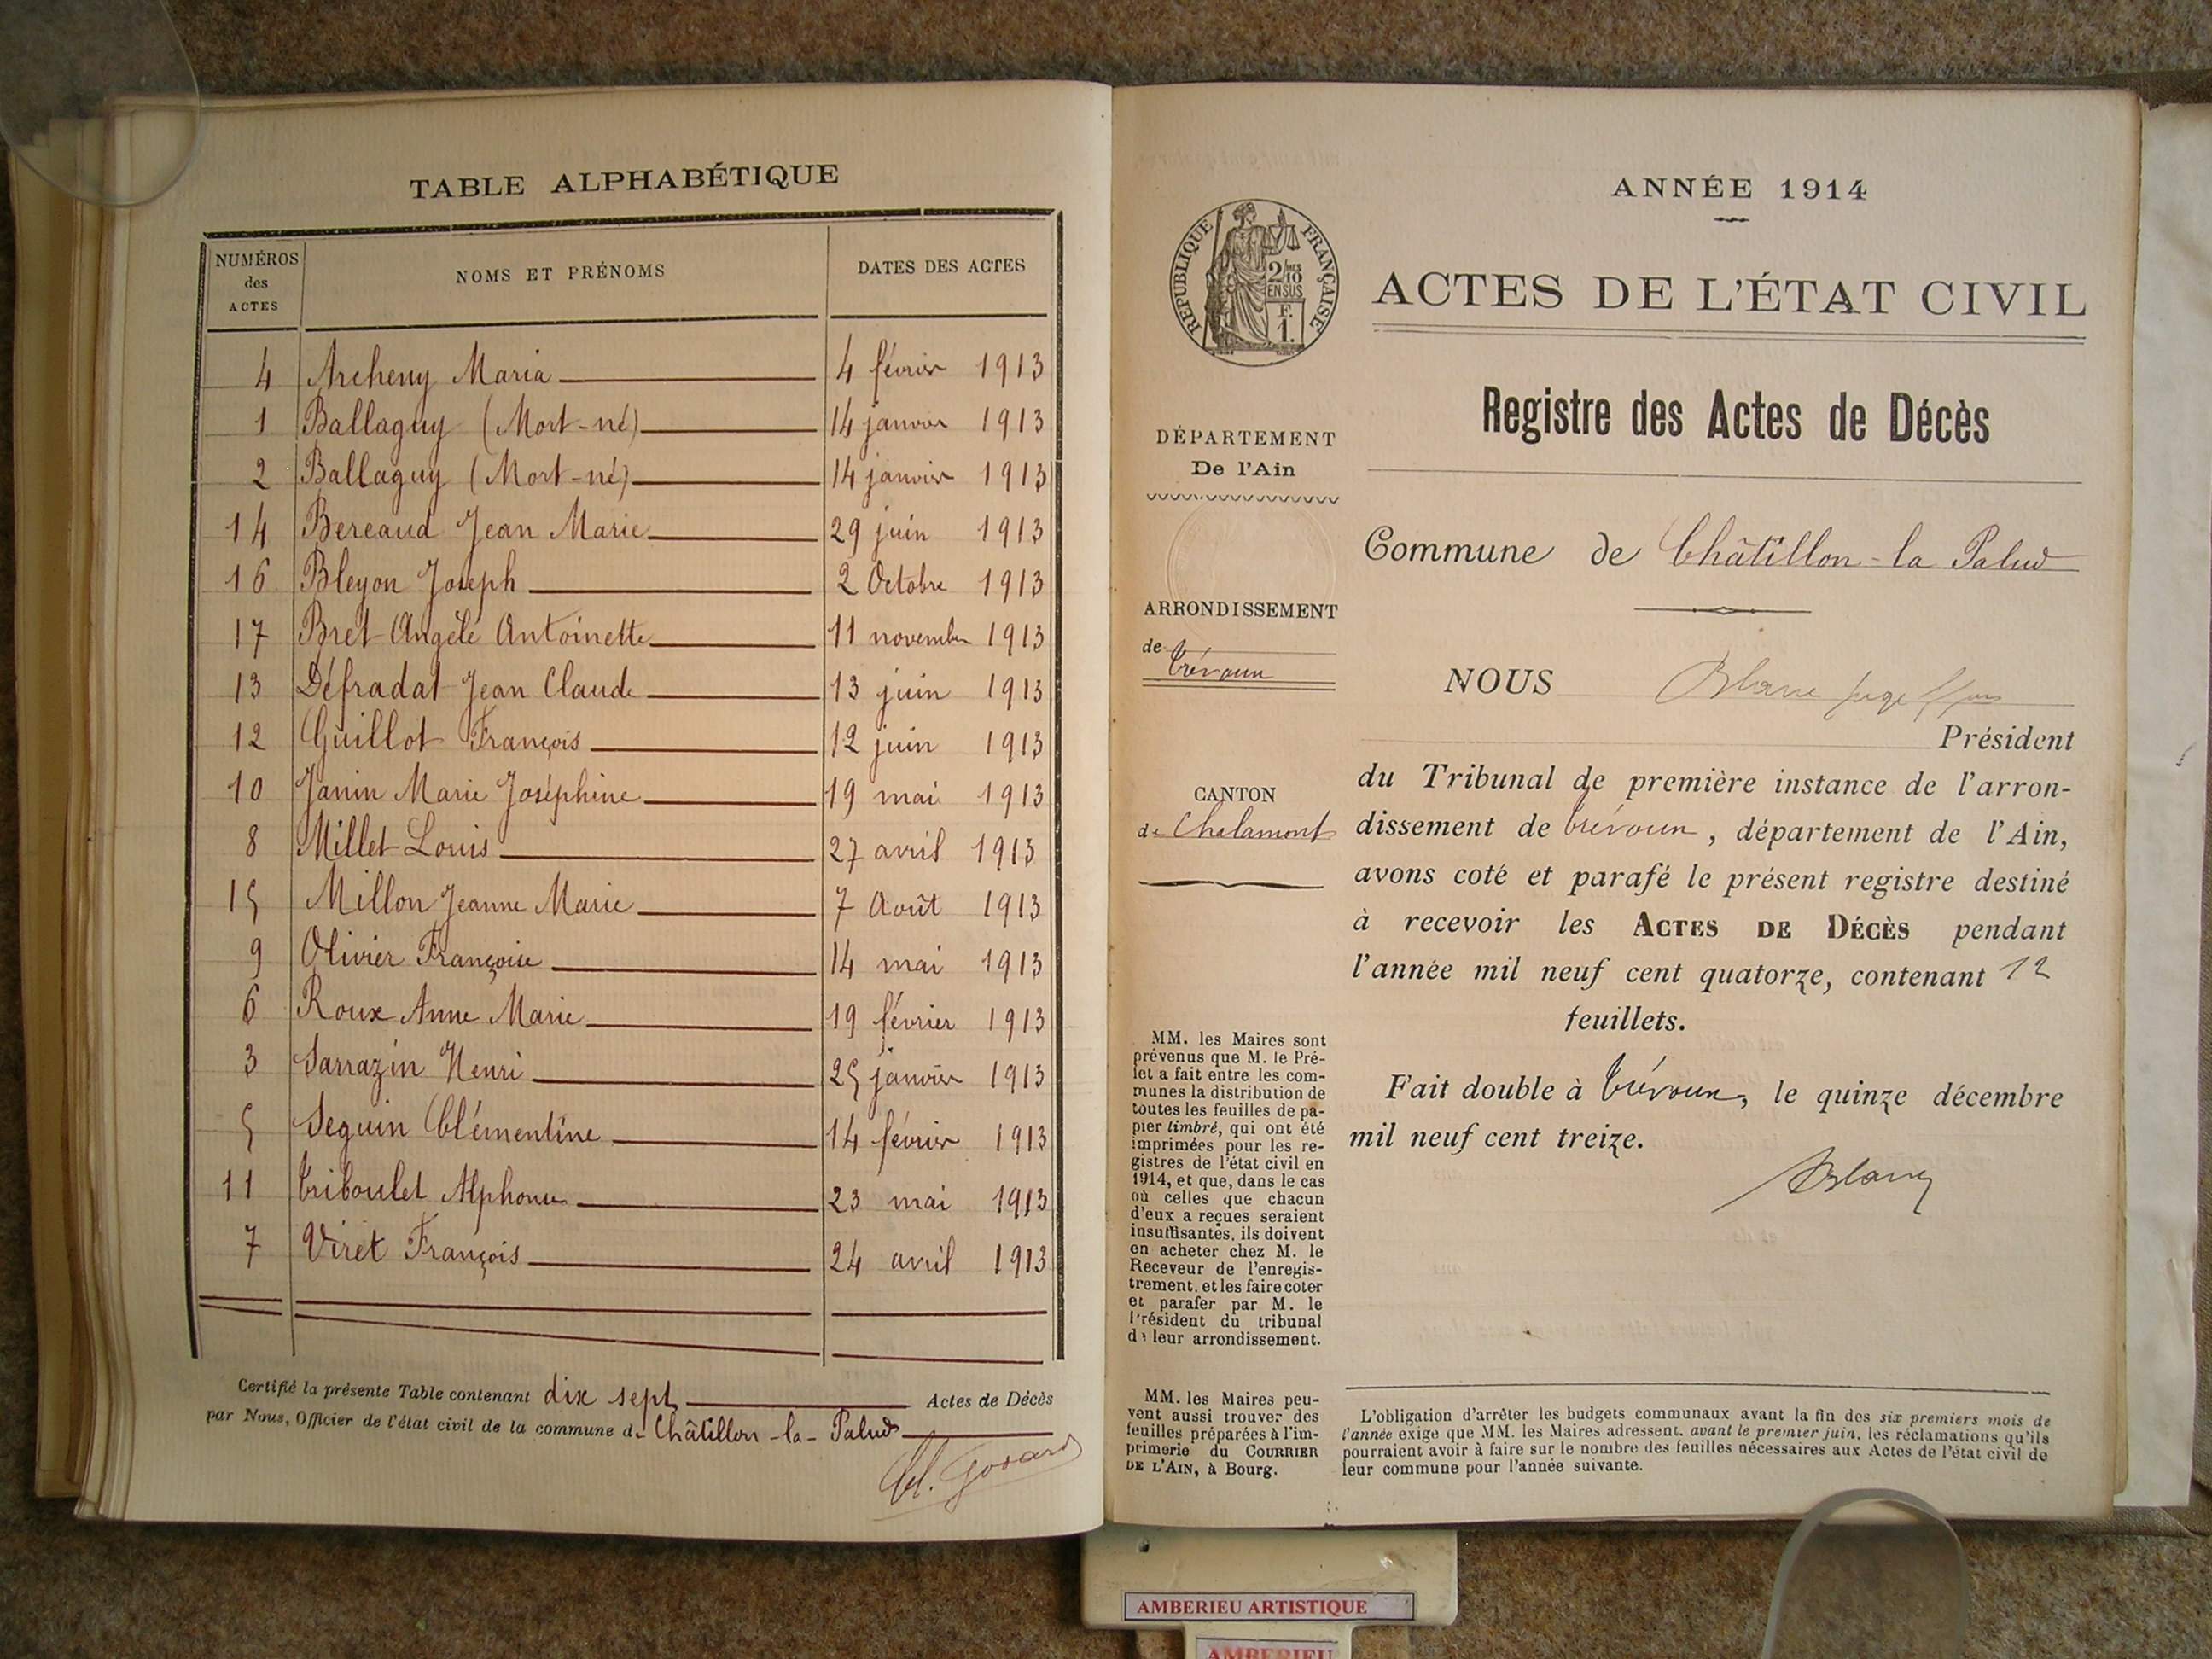 TABLE ALPHABÉTIQUE
NUMÉROS des ACTES | NOMS ET PRÉNOMS | DATES DES ACTES
4 Archeny Maria 4 février 1913
1 Ballaguy (Mort-né) 14 janvier 1913
2 Ballaguy (Mort-né) 14 janvier 1913
14 Bereaud Jean Marie 29 juin 1913
16 Bleyon Joseph 2 Octobre 1913
17 Bret Angèle Antoinette 11 novembre 1913
13 Défradat Jean Claude 13 juin 1913
12 Guillot François 12 juin 1913
10 Janin Marie Joséphine 19 mai 1913
8 Millet Louis 27 avril 1913
15 Millon Jeanne Marie 7 Août 1913
9 Olivier Françoise 14 mai 1913
6 Roux Anne Marie 19 février 1913
3 Sarrazin Henri 25 janvier 1913
5 Seguin Clémentine 14 février 1913
11 Triboulet Alphonse 23 mai 1913
7 Viret François 24 avril 1913
Certifié la présente Table contenant dix sept Actes de Décès
par Nous, Officier de l'état civil de la commune de Châtillon-la-Palud
ANNÉE 1914
RÉPUBLIQUE FRANÇAISE
2/10 EN SUS
F.
1.
ACTES DE L'ÉTAT CIVIL
Registre des Actes de Décès
DÉPARTEMENT
De l'Ain
Commune de Châtillon-la Palud
ARRONDISSEMENT
de Trévoux
NOUS Blanc juge
Président
CANTON
de Chalamont
du Tribunal de première instance de l'arron-
dissement de Trévoux, département de l'Ain,
avons coté et parafé le présent registre destiné
à recevoir les ACTES DE DÉCÈS pendant
l'année mil neuf cent quatorze, contenant 12
feuillets.
Fait double à Trévoux, le quinze décembre
mil neuf cent treize.
Blanc
MM. les Maires sont
prévenus que M. le Pré-
fet a fait entre les com-
munes la distribution de
toutes les feuilles de pa-
pier timbré, qui ont été
imprimées pour les re-
gistres de l'état civil en
1914, et que, dans le cas
où celles que chacun
d'eux a reçues seraient
insuffisantes, ils doivent
en acheter chez M. le
Receveur de l'enregis-
trement, et les faire coter
et parafer par M. le
Président du tribunal
de leur arrondissement.
MM. les Maires peu-
vent aussi trouver des
feuilles préparées à l'im-
primerie du COURRIER
DE L'AIN, à Bourg.
L'obligation d'arrêter les budgets communaux avant la fin des six premiers mois de
l'année exige que MM. les Maires adressent, avant le premier juin, les réclamations qu'ils
pourraient avoir à faire sur le nombre des feuilles nécessaires aux Actes de l'état civil de
leur commune pour l'année suivante.
AMBERIEU ARTISTIQUE
AMBERIEU